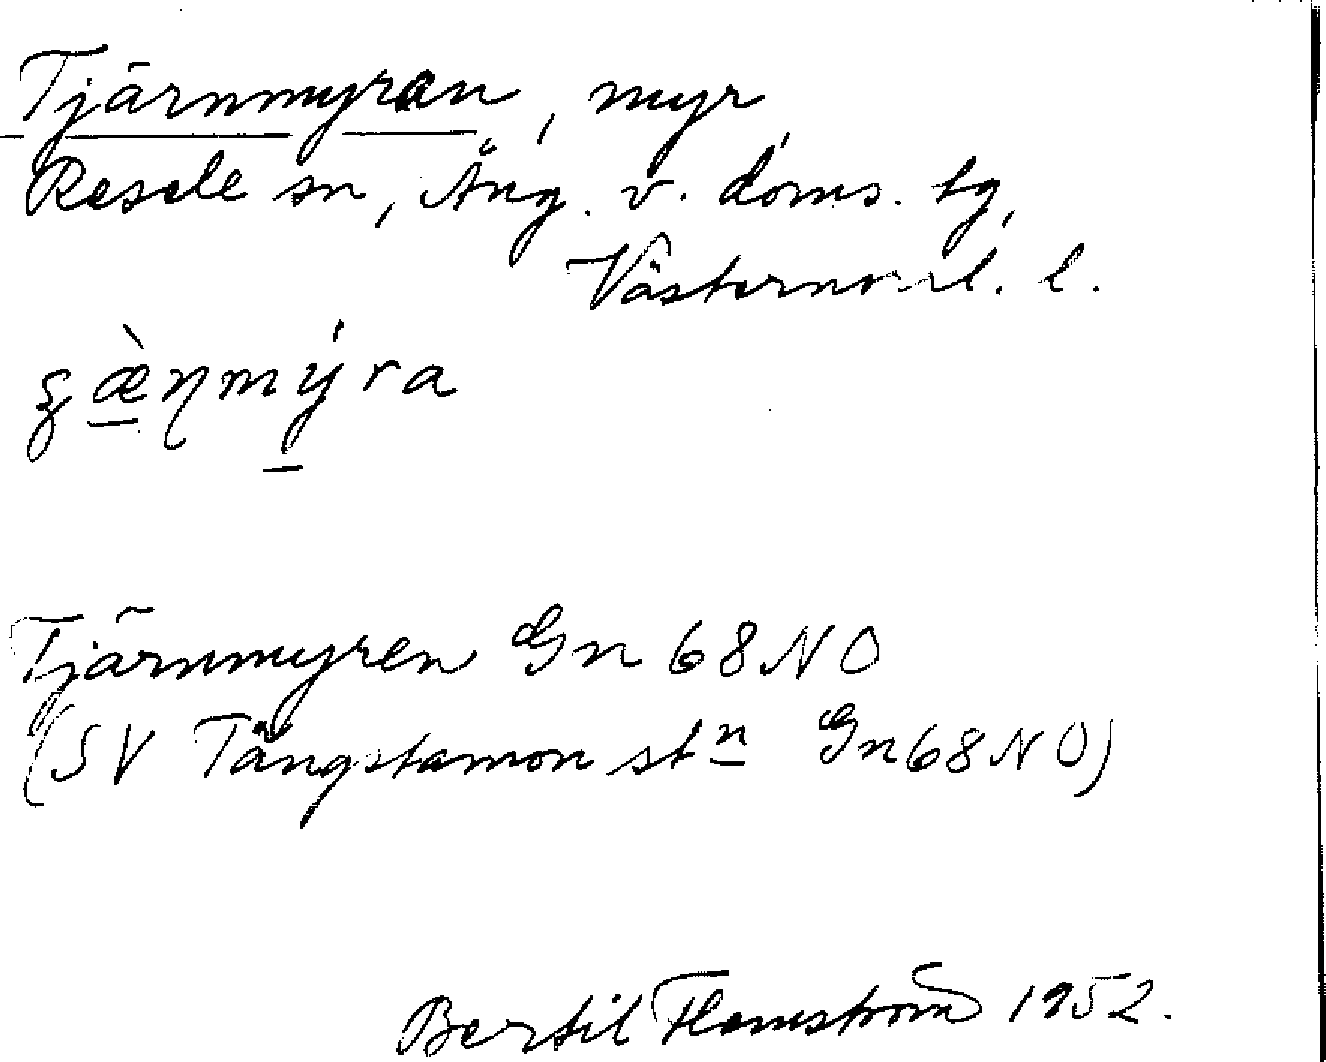 Tjärnmyran, myr
Resele sn, Ång. v. doms. tg,
Västernorrl. l.
Tjärnmyren Gn 68 NO
(SV Tångstamon stn Gn 68 NO)
Bertil Flemström 1952.